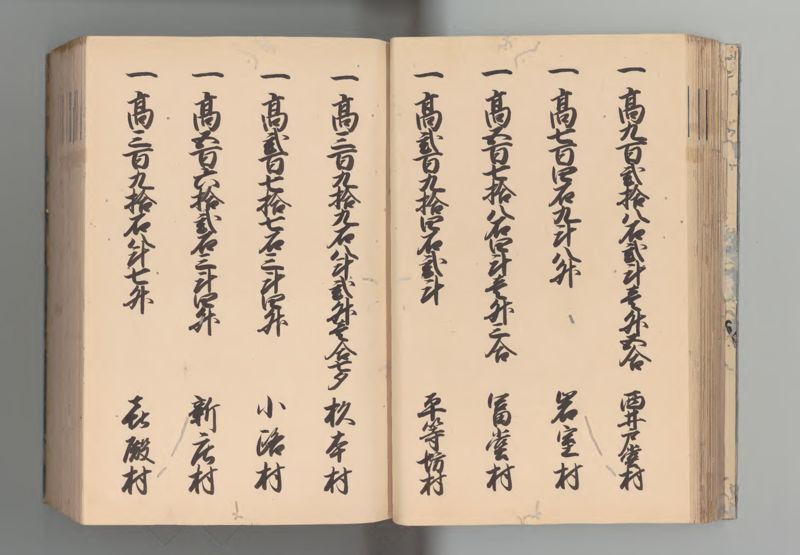 一 高九百弐拾八石弐斗壱升五合 西井戸堂村
一 高七百四石九斗八升 岩室村
一 高五百七拾八石四斗壱升三合 冨堂村
一 高弐百九拾四石弐斗 平等坊村
一 高三百九拾九石八斗弐升壱合七夕 杉本村
一 高弐百七拾七石三斗四升 小路村
一 高五百六拾弐石三斗四升 新庄村
一 高三百九拾石八斗七升 喜殿村